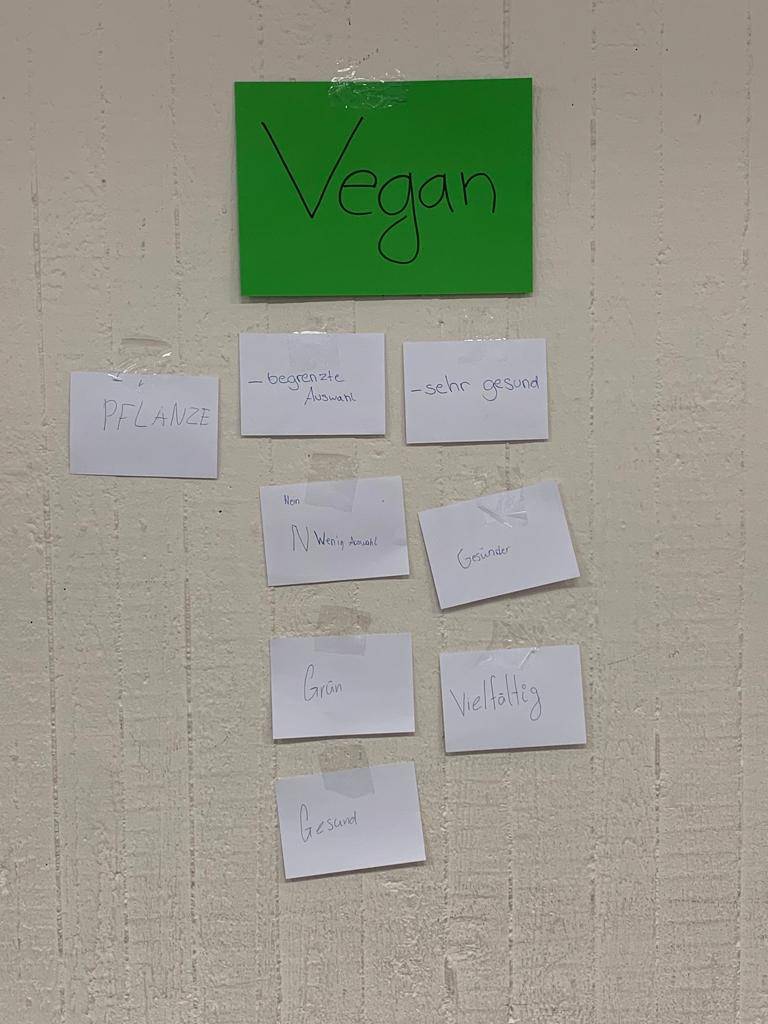 Vegan
PFLANZE
- begrenzte
Auswahl
- sehr gesund
Nein
N Wenig Auswahl
Gesünder
Grün
Vielfältig
Gesund